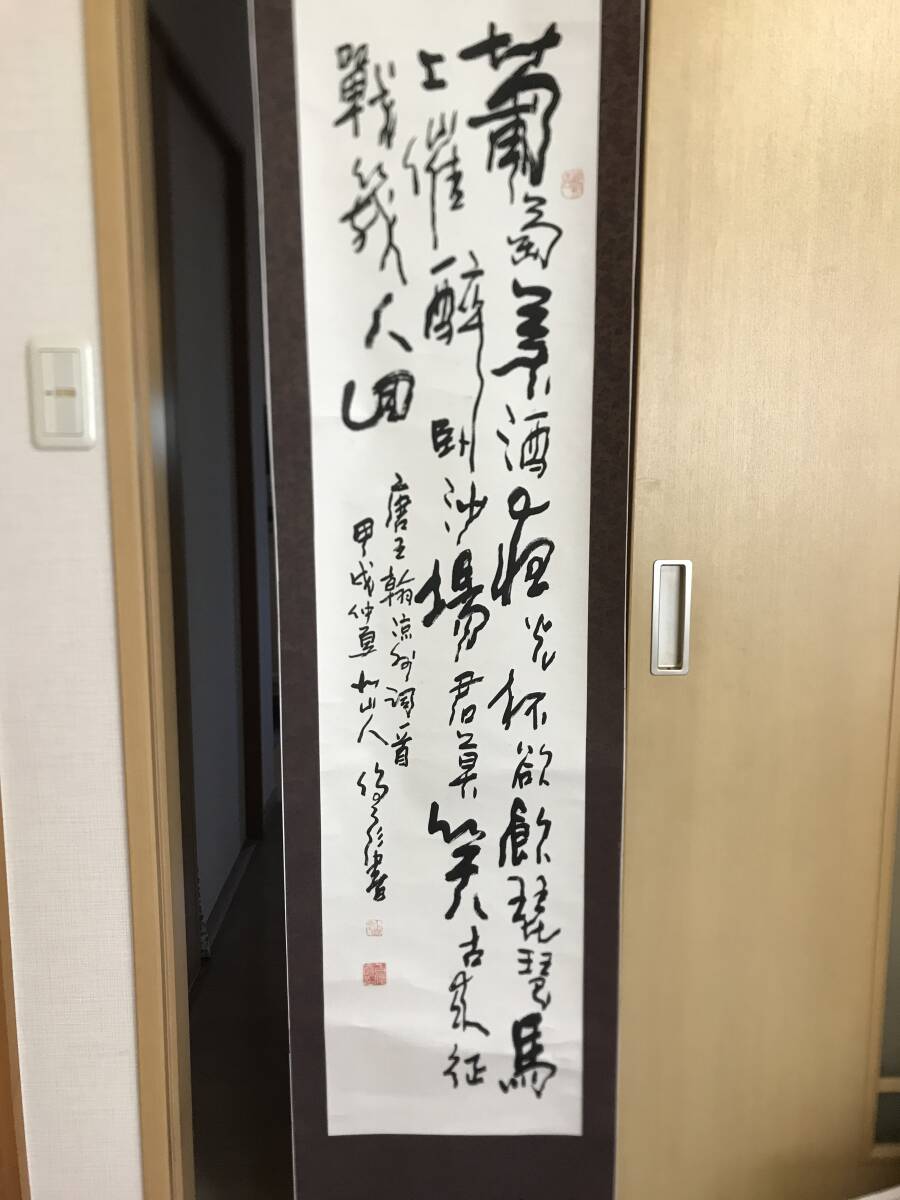 葡萄美酒夜光杯欲飲琵琶馬
上催醉臥沙場君莫笑古來征
戰幾人回
唐王翰涼州詞一首
甲戌仲夏山人書